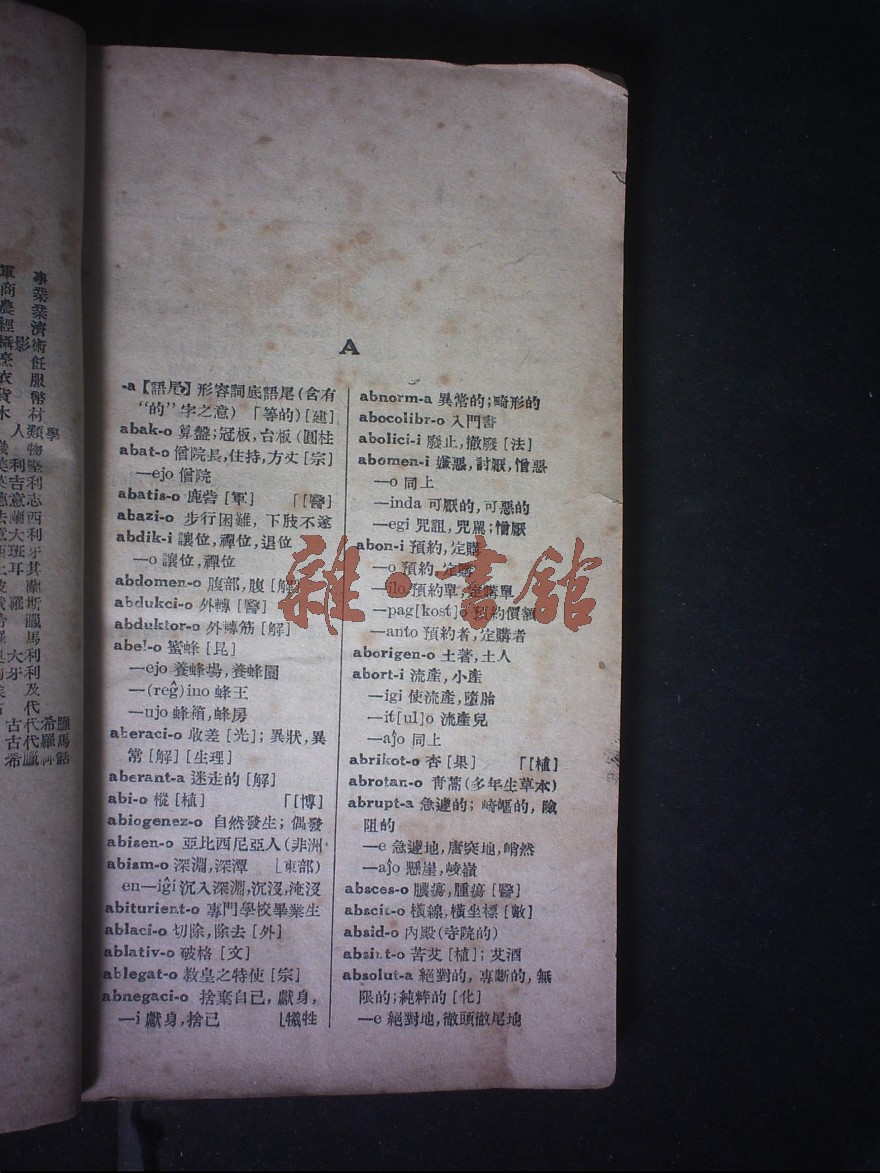 軍事
商業
農業
經濟
攝影術
烹飪
衣服
貨幣
木材
人類學
織物
美利堅
英吉利
德意志
法蘭西
意大利
西班牙
土耳其
波蘭
俄羅斯
希臘
羅馬
奧大利
匈牙利
埃及
古代
古代希臘
古代羅馬
希臘神話
A
-a【語尾】形容詞底語尾(含有
“的”字之意) 「等的)[建]
abak-o 算盤;冠板,台板(圓柱
abat-o 僧院長,住持,方丈[宗]
—ejo 僧院
abatis-o 鹿砦[軍] 「[醫]
abazi-o 步行困難, 下肢不遂
abdik-i 讓位,禪位,退位
—o 讓位,禪位
abdomen-o 腹部,腹[解]
abdukci-o 外轉[醫]
abduktor-o 外轉筋[解]
abel-o 蜜蜂[昆]
—ejo 養蜂場,養蜂園
—(reĝ)ino 蜂王
—ujo 蜂箱,蜂房
aberaci-o 收差[光]; 異狀,異
常[解][生理]
aberant-a 迷走的[解]
abi-o 樅[植] 「[博]
abiogenez-o 自然發生; 偶發
abisen-o 亞比西尼亞人(非洲
abism-o 深淵,深潭 ⌊東部)
en—iĝi 沉入深淵,沉沒,淹沒
abiturient-o 專門學校畢業生
ablaci-o 切除,除去[外]
ablativ-o 破格[文]
ablegat-o 教皇之特使[宗]
abnegaci-o 捨棄自己,獻身,
—i 獻身,捨己 ⌊犧牲
abnorm-a 異常的;畸形的
abocolibr-o 入門書
abolici-i 廢止,撤廢[法]
abomen-i 嫌惡,討厭,憎惡
—o 同上
—inda 可厭的,可惡的
—egi 咒詛,咒罵;憎厭
abon-i 預約,定購
—o 預約,定購
—ilo 預約單,定購單
—pag[kost]o 預約價額
—anto 預約者,定購者
aborigen-o 土著,土人
abort-i 流產,小產
—igi 使流產,墮胎
—it[ul]o 流產兒
—aĵo 同上
abrikot-o 杏[果] 「[植]
abrotan-o 青蒿(多年生草本)
abrupt-a 急遽的; 崎嶇的, 險
阻的
—e 急遽地,唐突地,峭然
—aĵo 懸崖,峻嶺
absces-o 膿瘍,腫瘍[醫]
abscis-o 橫線,橫坐標[數]
absid-o 內殿(寺院的)
absint-o 苦艾[植]; 艾酒
absolut-a 絕對的, 專斷的, 無
限的;純粹的[化]
—e 絕對地,徹頭徹尾地
雜·書館